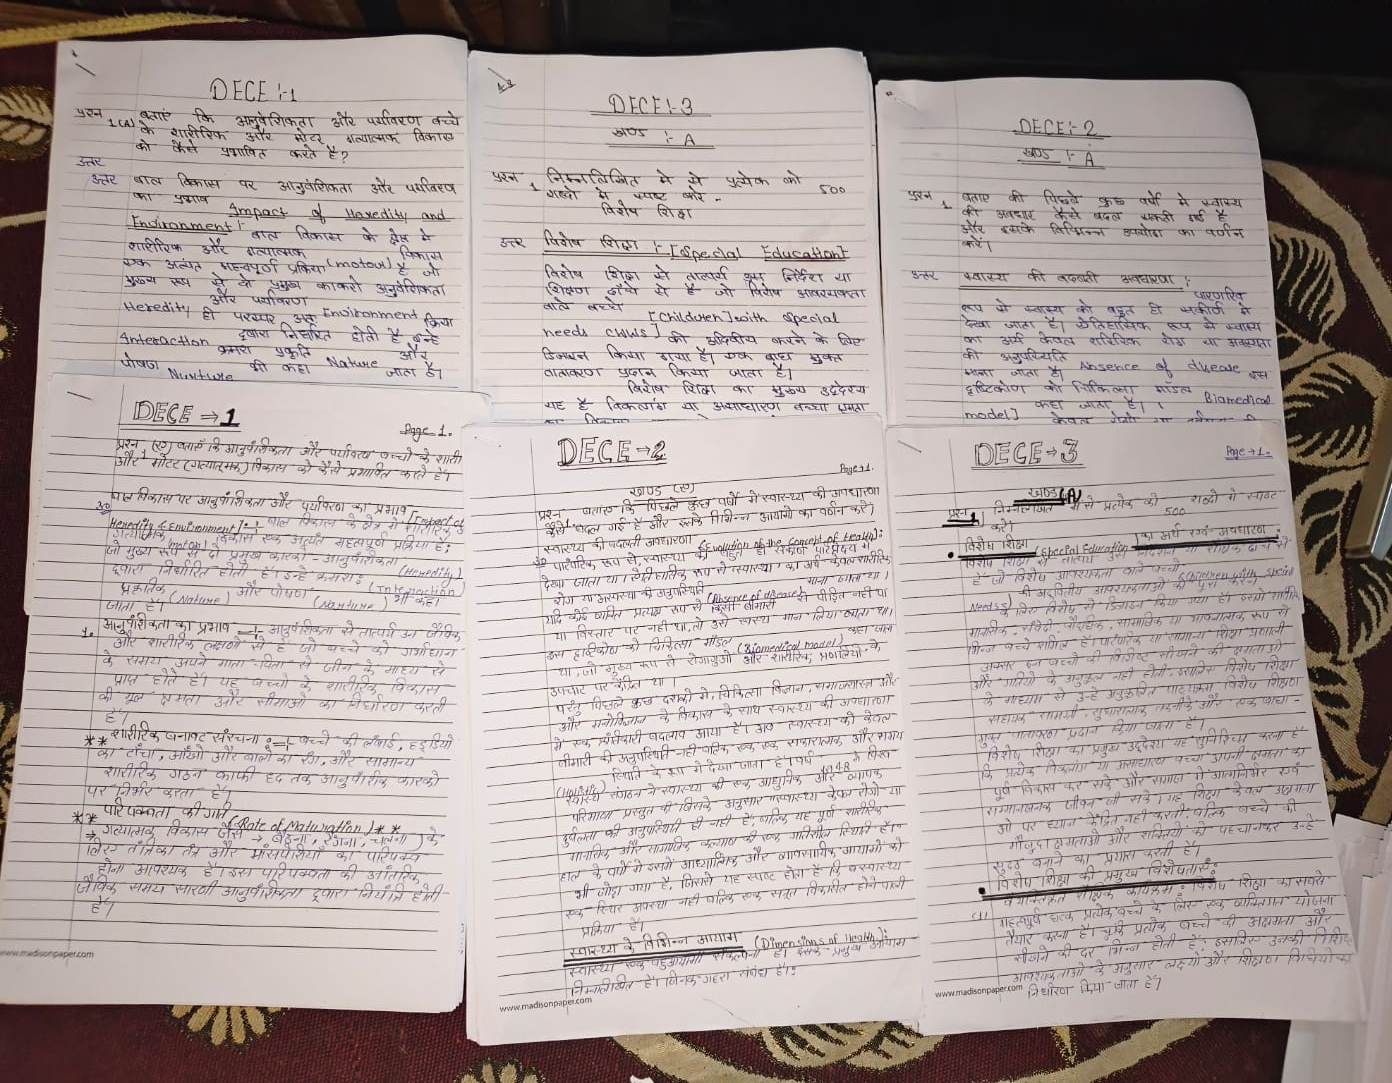 DECE :- 1
प्रश्न 1(A) बताएं कि आनुवंशिकता और पर्यावरण बच्चे
के शारीरिक और मोटर गत्यात्मक विकास
को कैसे प्रभावित करते है?
उत्तर
उत्तर बाल विकास पर आनुवंशिकता और पर्यावरण
का प्रभाव Impact of Haredity and
Environment :- बाल विकास के क्षेत्र में
शारीरिक और गत्यात्मक विकास
एक अत्यंत महत्वपूर्ण प्रक्रिया (motou) है जो
मुख्य रूप से दो प्रमुख कारको अनुवंशिकता
और पर्यावरण
Heredity ही परस्पर अतः Environment क्रिया
Interaction द्वारा निर्धारित होती है इन्हे
क्रमशः प्रकृति और
पोषण Nurture भी कहा Nature जाता है।
DECE :- 3
खण्ड :- A
प्रश्न 1 निम्नलिखित मे से प्रत्येक को 500
शब्दो में स्पष्ट करे -
विशेष शिक्षा
उत्तर विशेष शिक्षा :- [Special Education]
विशेष शिक्षा से तात्पर्य इस निर्देश या
शिक्षण ढाँचे से है जो विशेष आवश्यकता
वाले बच्चे
[Children] with special
needs childs] की अद्वितीय करने के लिए
डिजाइन किया गया है। एक बाधा मुक्त
वातावरण प्रदान किया जाता है।
विशेष शिक्षा का मुख्य उद्देश्य
यह है विकलांग या असाधारण बच्चा क्षमता
DECE :- 2
खण्ड :- A
प्रश्न 1 बताए की पिछले कुछ वर्षो मे स्वास्थ्य
की अवधारणा कैसे बदल गई है
और इसके विभिन्न का वर्णन
करें।
उत्तर स्वास्थ्य की बदलती अवधारणा :
पारंपरिक
रूप से स्वास्थ्य को बहुत ही संकीर्ण मे
देखा जाता है। ऐतिहासिक रूप से स्वास्थ्य
का अर्थ केवल शारीरिक रोग या अस्वस्थता
की अनुपस्थिति
माना जाता है। Absence of disease इस
दृष्टिकोण को चिकित्सा मॉडल Biomedical
model] कहा जाता है।
DECE → 1
Page 1.
प्रश्न 1 (ए) बताएँ कि आनुवंशिकता और पर्यावरण बच्चो के शारी
और मोटर (गत्यात्मक) विकास को कैसे प्रभावित करते है।
बाल विकास पर आनुवंशिकता और पर्यावरण का प्रभाव [Impact of
Heredity & Environment] :- बाल विकास के क्षेत्र में शारीरिक
गत्यात्मक (motor) विकास एक अत्यंत महत्वपूर्ण प्रक्रिया है;
जो मुख्य रूप से दो प्रमुख कारको - आनुवंशिकता (Heredity)
द्वारा निर्धारित होती है। इन्हे क्रमशः (Interaction)
प्रकृति (Nature) और पोषण (Nurture) भी कहा
जाता है।
1. आनुवंशिकता का प्रभाव :- आनुवंशिकता से तात्पर्य उन जैविक
और शारीरिक लक्षणो से है जो बच्चे को गर्भाधान
के समय अपने माता-पिता से जीन के माध्यम से
प्राप्त होते है। यह बच्चो के शारीरिक विकास
की मूल क्षमता और सीमाओं का निर्धारण करती
है।
** शारीरिक बनावट संरचना :- बच्चे की लंबाई, हड्डियो
का ढाँचा, आँखो और बालो का रंग, और सामान्य
शारीरिक गठन काफी हद तक आनुवंशिक कारको
पर निर्भर करता है।
** परिपक्वता की गति (Rate of Maturation) **
→ गत्यात्मक विकास जैसे → बैठना, रेंगना, चलना) के
लिए तंत्रिका तंत्र और मांसपेशियो का परिपक्व
होना आवश्यक है। इस परिपक्वता की आंतरिक
जैविक समय सारणी आनुवंशिकता द्वारा नियंत्रित होती
है।
www.madisonpaper.com
DECE → 2
Page → 1.
खण्ड (ए)
प्रश्न - बताएं कि पिछले कुछ वर्षों में स्वास्थ्य की अवधारणा
कैसे बदल गई है और इसके विभिन्न आयामो का वर्णन करें।
स्वास्थ्य की बदलती अवधारणा (Evolution of the Concept of Health):
पारंपरिक रूप से, स्वास्थ्य को बहुत ही संकीर्ण परिप्रेक्ष्य में
देखा जाता था। ऐतिहासिक रूप से स्वास्थ्य का अर्थ केवल शारीरिक
रोग या अस्वस्थता की अनुपस्थिति (Absence of disease) माना जाता था।
यदि कोई व्यक्ति प्रत्यक्ष रूप से किसी बीमारी से पीड़ित नहीं था
या बिस्तर पर नहीं था, तो उसे स्वस्थ मान लिया जाता था।
इस दृष्टिकोण को चिकित्सा मॉडल (Biomedical model) कहा जाता
था, जो मुख्य रूप से रोगाणुओं और शारीरिक प्रणालियो के
उपचार पर केंद्रित था।
परंतु पिछले कुछ दशको में, चिकित्सा विज्ञान, समाजशास्त्र और
और मनोविज्ञान के विकास के साथ स्वास्थ्य की अवधारणा
में एक क्रांतिकारी बदलाव आया है। अब स्वास्थ्य को केवल
बीमारी की अनुपस्थिति नहीं बल्कि एक सकारात्मक और समग्र
(Holistic) स्थिति के रूप में देखा जाता है। वर्ष 1948 में विश्व
स्वास्थ्य संगठन ने स्वास्थ्य की एक आधुनिक और व्यापक
परिभाषा प्रस्तुत की जिसके अनुसार "स्वास्थ्य केवल रोगो या
दुर्बलता की अनुपस्थिति ही नहीं है, बल्कि यह पूर्ण शारीरिक
मानसिक और सामाजिक कल्याण की एक गतिशील स्थिति है।"
हाल के वर्षो में इसमें आध्यात्मिक और व्यावसायिक आयामो को
भी जोड़ा गया है, जिससे यह स्पष्ट होता है कि स्वास्थ्य
एक स्थिर अवस्था नहीं बल्कि एक सतत विकसित होने वाली
प्रक्रिया है।
स्वास्थ्य के विभिन्न आयाम (Dimensions of Health):
स्वास्थ्य एक बहुआयामी संकल्पना है। इसके प्रमुख आयाम
निम्नलिखित है। जिनके गहरा संबंध है।:
www.madisonpaper.com
DECE → 3
Page → 1.
खण्ड (A)
प्रश्न 1 निम्नलिखित में से प्रत्येक को 500 शब्दो में स्पष्ट
करें।
• विशेष शिक्षा (Special Education) का अर्थ एवं अवधारणा :
विशेष शिक्षा से तात्पर्य उस निर्देश या शैक्षिक ढाँचे से
है जो विशेष आवश्यकता वाले बच्चो (Children with Special
Needs) की अद्वितीय आवश्यकताओं को पूरा करने
के लिए विशेष से डिजाइन किया गया है।
मानसिक, संवेदी, बौद्धिक, सामाजिक या भावनात्मक रूप से
भिन्न बच्चे शामिल है। पारंपरिक या सामान्य शिक्षा प्रणाली
अक्सर इन बच्चो की विशिष्ट सीखने की क्षमताओं
और गतियो के अनुकूल नहीं होती, इसलिए विशेष शिक्षा
के माध्यम से उन्हें अनुकूलित पाठ्यक्रम, विशेष शिक्षण
सहायक सामग्री, सुधारात्मक तकनीके और एक बाधा-
मुक्त वातावरण प्रदान किया जाता है।
विशेष शिक्षा का प्रमुख उद्देश्य यह सुनिश्चित करना है
कि प्रत्येक विकलांग या असाधारण बच्चा अपनी क्षमता का
पूर्ण विकास कर सके और समाज में आत्मनिर्भर एवं
सम्मानजनक जीवन जी सके। यह शिक्षा केवल अक्षमता
ओ पर ध्यान केंद्रित नहीं करती, बल्कि बच्चे की
मौजूदा क्षमताओं और शक्तियो को पहचानकर उन्हे
सुदृढ़ बनाने का प्रयास करती है।
• विशेष शिक्षा की प्रमुख विशेषताएं:
(1) व्यक्तिगत शैक्षिक कार्यक्रम : विशेष शिक्षा का सबसे
महत्वपूर्ण घटक प्रत्येक बच्चे के लिए एक व्यक्तिगत योजना
तैयार करना है। चूंकि प्रत्येक बच्चे की अक्षमता और
सीखने की दर भिन्न होती है, इसलिए उनकी विशिष्ट
आवश्यकताओं के अनुसार लक्ष्यो और शिक्षण विधियो का
निर्धारण किया जाता है।
www.madisonpaper.com